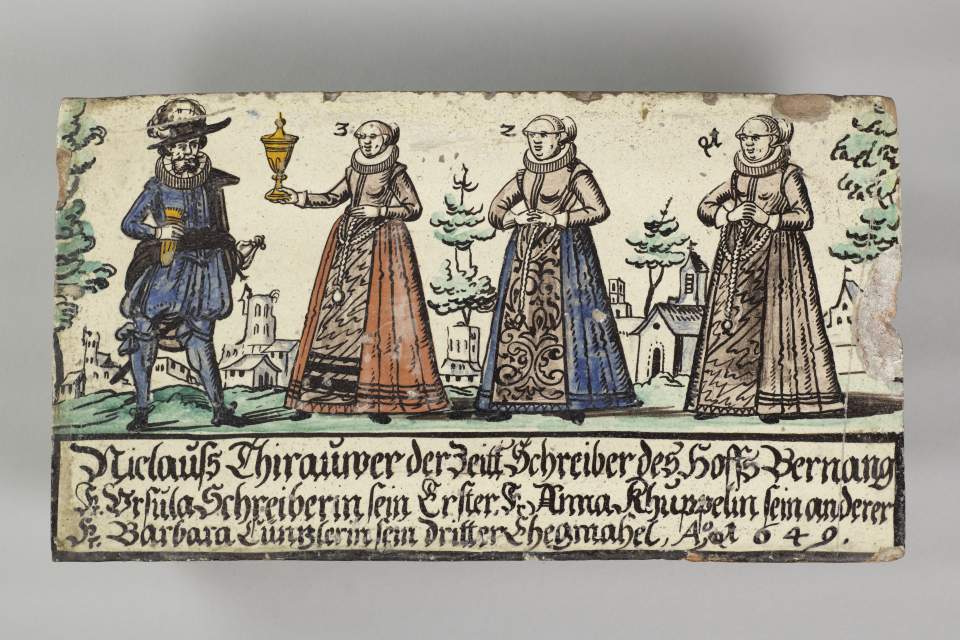 3 2 1
Niclauss Thirauwer der Zeitt Schreiber des Hoffs Bernang
Fr. Vrsula Schreiberin sein Erster, Fr. Anna Khuppelin sein anderer
Fr. Barbara Cuntzlerin sein dritter Ehegmahel, Ao. 1649.